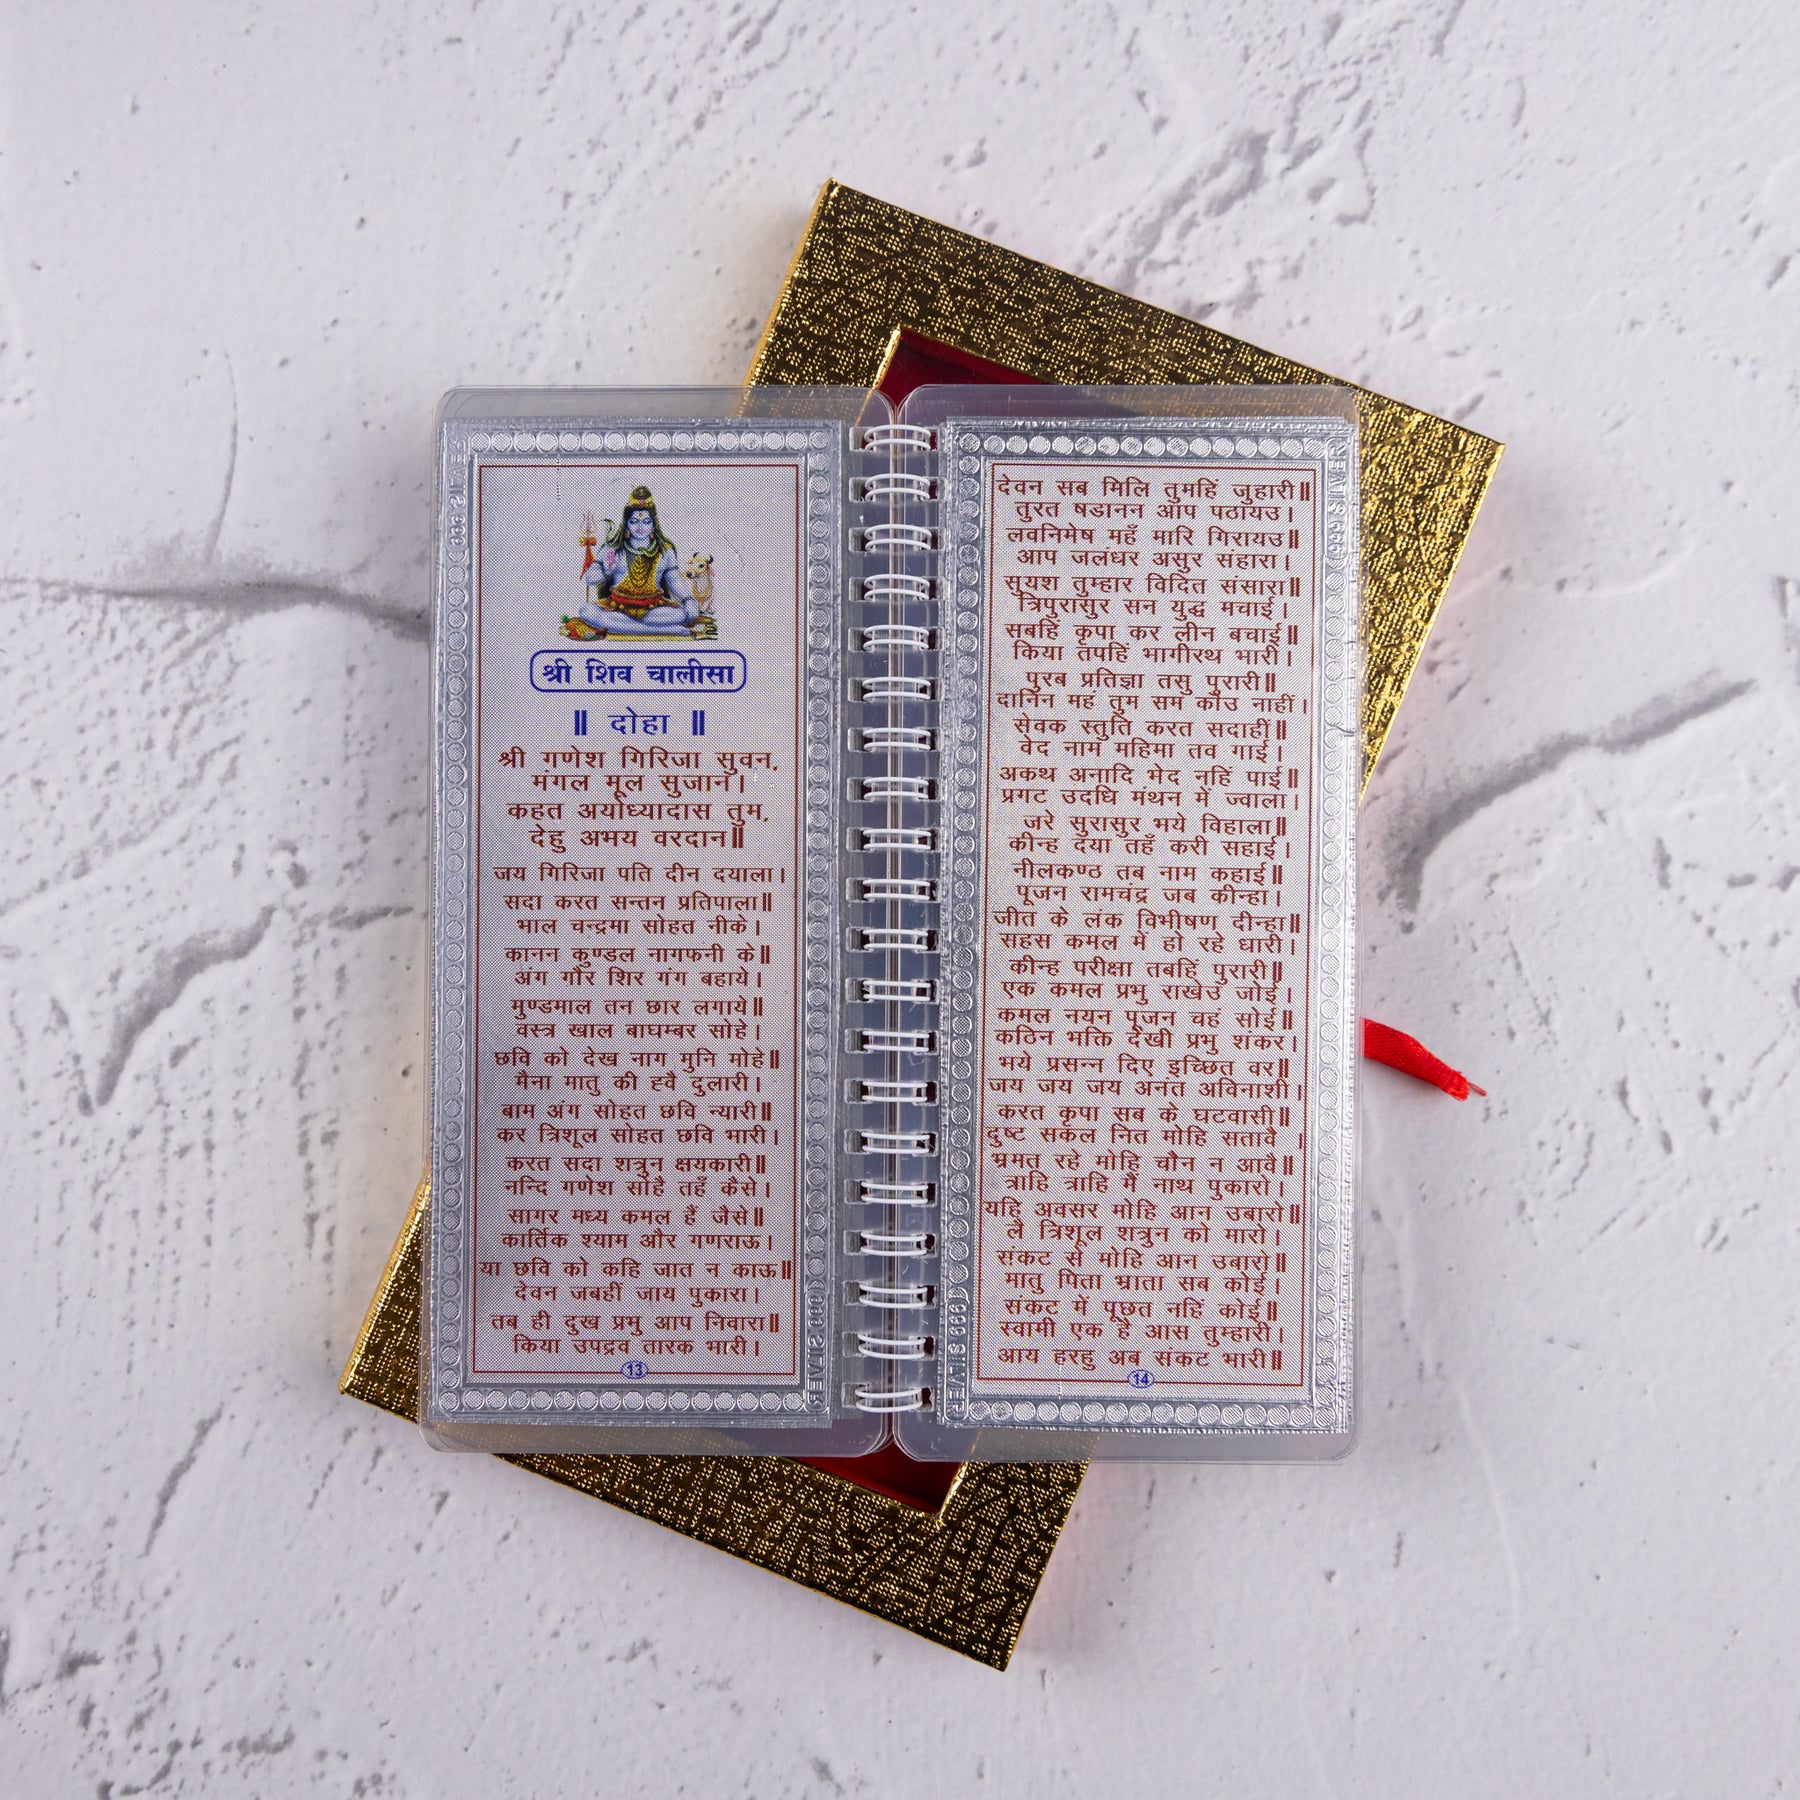 श्री शिव चालीसा
॥ दोहा ॥
श्री गणेश गिरिजा सुवन,
मंगल मूल सुजान।
कहत अयोध्यादास तुम,
देहु अभय वरदान॥
जय गिरिजा पति दीन दयाला।
सदा करत सन्तन प्रतिपाला॥
भाल चन्द्रमा सोहत नीके।
कानन कुण्डल नागफनी के॥
अंग गौर शिर गंग बहाये।
मुण्डमाल तन छार लगाये॥
वस्त्र खाल बाघम्बर सोहे।
छवि को देख नाग मुनि मोहे॥
मैना मातु की ह्वै दुलारी।
बाम अंग सोहत छवि न्यारी॥
कर त्रिशूल सोहत छवि भारी।
करत सदा शत्रुन क्षयकारी॥
नन्दि गणेश सोहैं तहँ कैसे।
सागर मध्य कमल हैं जैसे॥
कार्तिक श्याम और गणराऊ।
या छवि को कहि जात न काऊ॥
देवन जबहीं जाय पुकारा।
तब ही दुख प्रभु आप निवारा॥
किया उपद्रव तारक भारी।
13
देवन सब मिलि तुमहिं जुहारी॥
तुरत षडानन आप पठायउ।
लवनिमेष महँ मारि गिरायउ॥
आप जलंधर असुर संहारा।
सुयश तुम्हार विदित संसारा॥
त्रिपुरासुर सन युद्ध मचाई।
सबहिं कृपा कर लीन बचाई॥
किया तपहिं भागीरथ भारी।
पुरब प्रतिज्ञा तसु पुरारी॥
दानिन महं तुम सम कोउ नाहीं।
सेवक स्तुति करत सदाहीं॥
वेद नाम महिमा तव गाई।
अकथ अनादि भेद नहिं पाई॥
प्रगट उदधि मंथन में ज्वाला।
जरे सुरासुर भये विहाला॥
कीन्ह दया तहँ करी सहाई।
नीलकण्ठ तब नाम कहाई॥
पूजन रामचंद्र जब कीन्हा।
जीत के लंक विभीषण दीन्हा॥
सहस कमल में हो रहे धारी।
कीन्ह परीक्षा तबहिं पुरारी॥
एक कमल प्रभु राखेउ जोई।
कमल नयन पूजन चहं सोई॥
कठिन भक्ति देखी प्रभु शंकर।
भये प्रसन्न दिए इच्छित वर॥
जय जय जय अनंत अविनाशी।
करत कृपा सब के घटवासी॥
दुष्ट सकल नित मोहि सतावै।
भ्रमत रहे मोहि चौन न आवै॥
त्राहि त्राहि मैं नाथ पुकारो।
यहि अवसर मोहि आन उबारो॥
लै त्रिशूल शत्रुन को मारो।
संकट से मोहि आन उबारो॥
मातु पिता भ्राता सब कोई।
संकट में पूछत नहिं कोई॥
स्वामी एक है आस तुम्हारी।
आय हरहु अब संकट भारी॥
14
999 SILVER